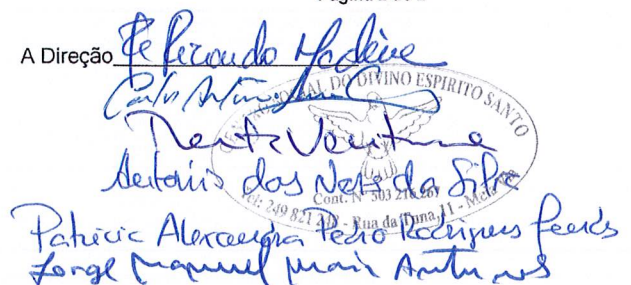 A Direção Pe Ricardo Madeira
Carlos António
Renata Ventura
António dos Neto da Silva
Patrícia Alexandra Pedro Rodrigues
Jorge Manuel Maia Antunes
SOCIAL DO DIVINO ESPIRITO SANTO
Cont. Nº 503 216 267
Tel: 249 821 - Rua da Tuna, 11 -